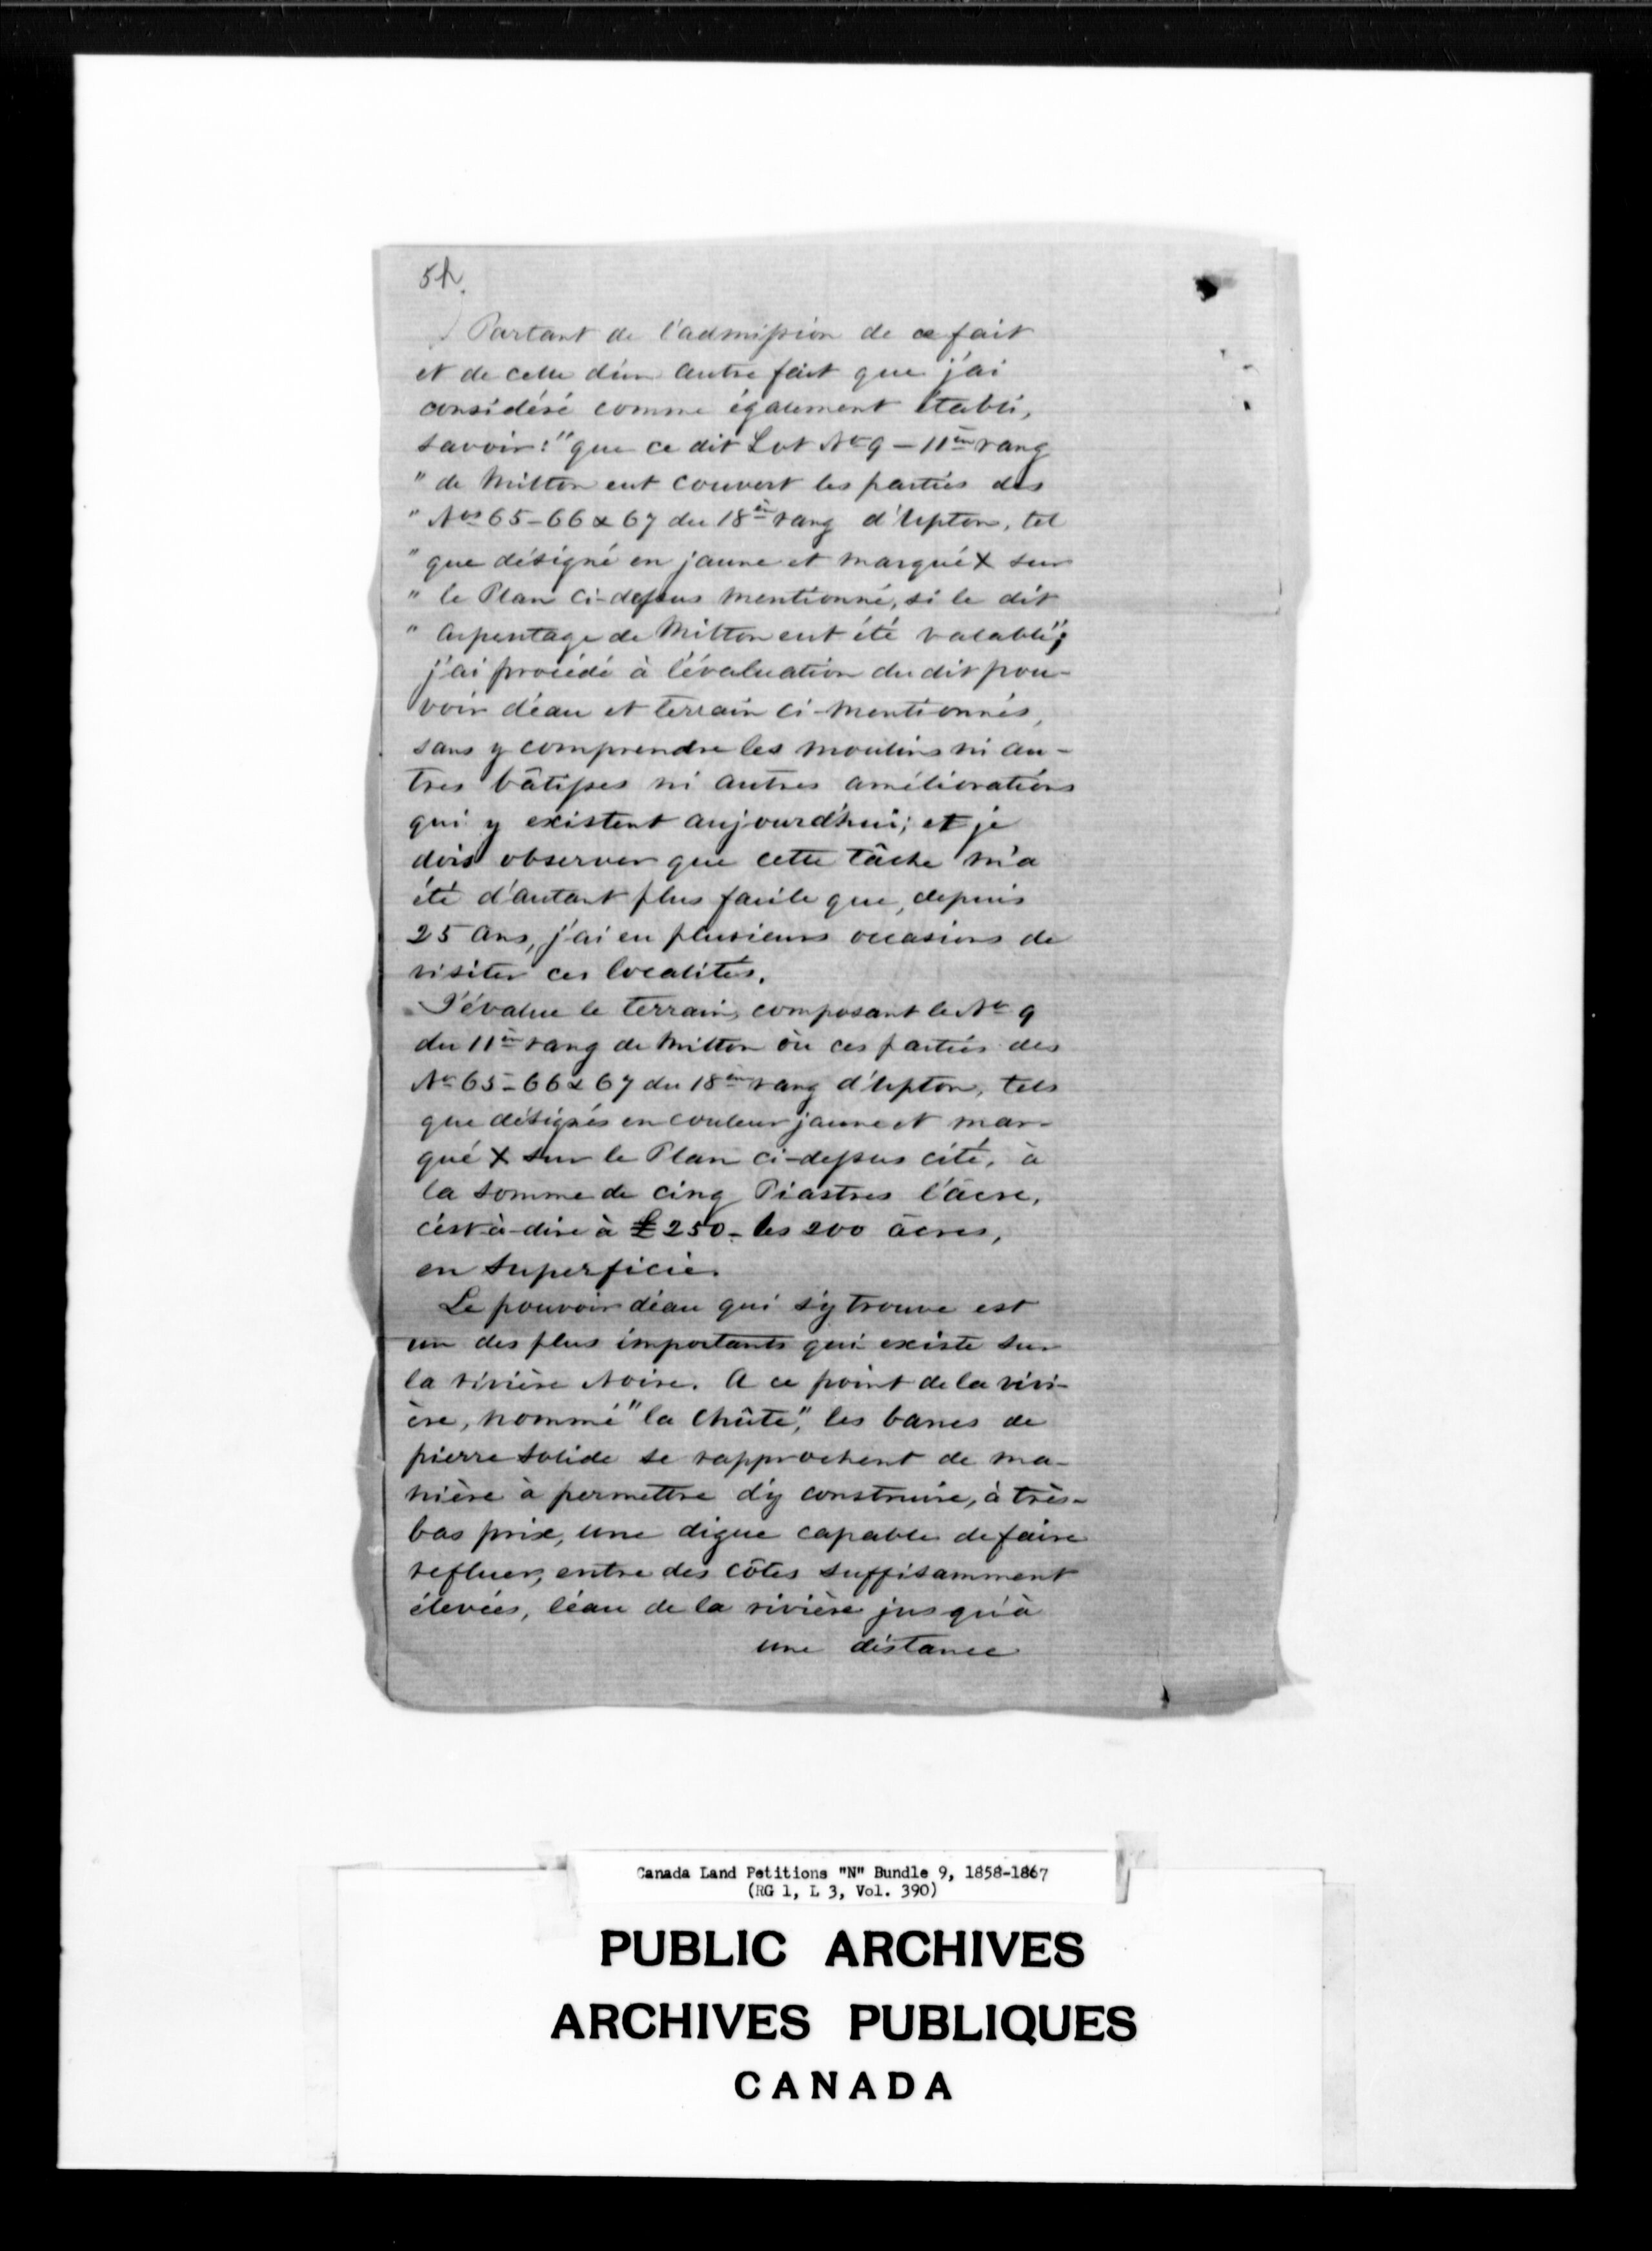 5h.
Partant de l'admission de ce fait
et de celle d'un autre fait que j'ai
considéré comme également établi,
savoir: "que ce dit Lot No 9 – 11èm rang
" de Milton eut couvert les parties des
" Nos 65–66 & 67 du 18èm rang d'Upton, tel
" que désigné en jaune et marqué X sur
" le Plan ci-dessus mentionné, si le dit
" arpentage de Milton eut été valable";
j'ai procédé à l'évaluation du dit pou-
voir d'eau et terrain ci-mentionnés,
sans y comprendre les moulins ni au-
tres bâtisses ni autres améliorations
qui y existent aujourd'hui; et je
dois observer que cette tâche m'a
été d'autant plus facile que, depuis
25 ans, j'ai eu plusieurs occasions de
visiter ces localités.
J'évalue le terrain, composant le No 9
du 11èm rang de Milton où ces parties des
No 65–66 & 67 du 18èm rang d'Upton, tels
que désignés en couleur jaune et mar-
qué X sur le Plan ci-dessus cité, à
la somme de cinq Piastres l'âcre,
c'est-à-dire à £250– les 200 âcres,
en superficie.
Le pouvoir d'eau qui s'y trouve est
un des plus importants qui existe sur
la rivière Noire. A ce point de la rivi-
ère, nommé "la Chûte", les bancs de
pierre solide se rapprochent de ma-
nière à permettre d'y construire, à très-
bas prix, une digue capable de faire
refluer, entre des côtes suffisamment
élevées, l'eau de la rivière jusqu'à
une distance
Canada Land Petitions "N" Bundle 9, 1858-1867
(RG 1, L 3, Vol. 390)
PUBLIC ARCHIVES
ARCHIVES PUBLIQUES
CANADA